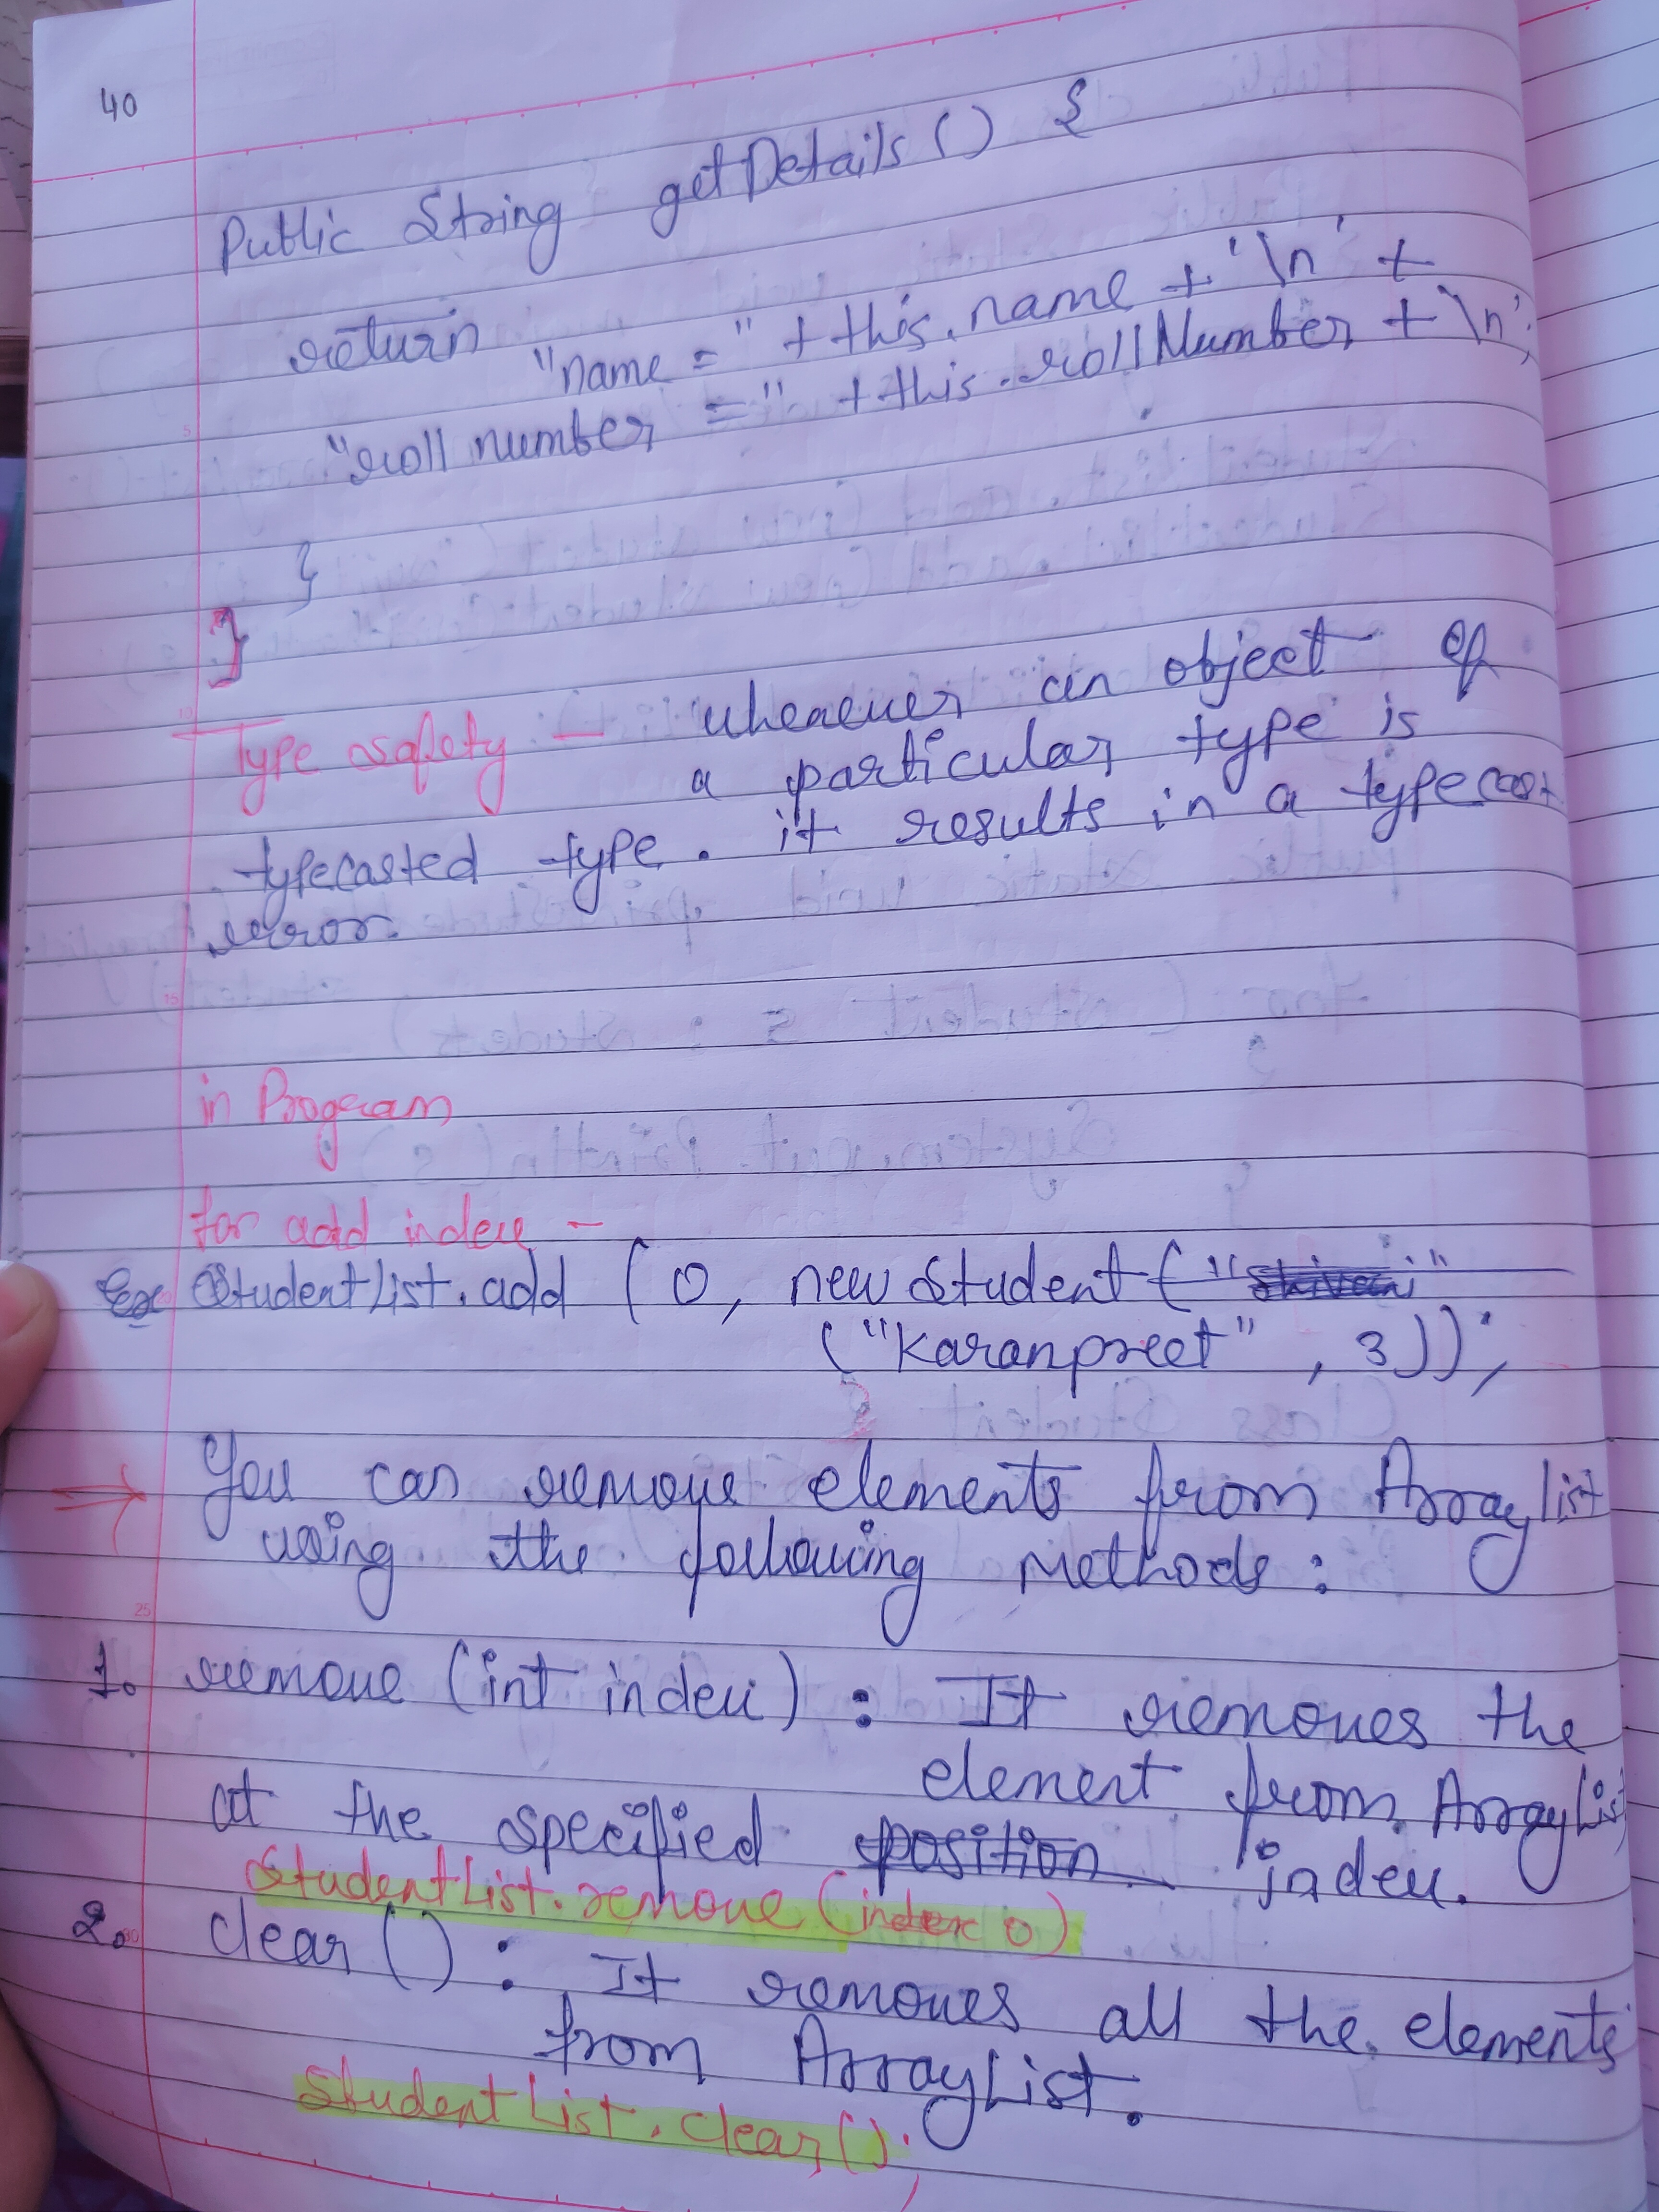 40
Public String getDetails () {
return "name =" + this.name + '\n' +
"roll number =" + this.rollNumber + \n';
}
}
Type safety — whenever an object of
a particular type is
typecasted type. it results in a typecast
error.
in Program
for add index —
Ex StudentList.add (0, new Student ("
("Karanpreet", 3));
→ You can remove elements from Arraylist
using the following Methods:
1. remove (int index) : It removes the
element from ArrayList
at the specified position index.
StudentList.remove (index 0)
2. clear () : It removes all the elements
from ArrayList.
Student List.clear();